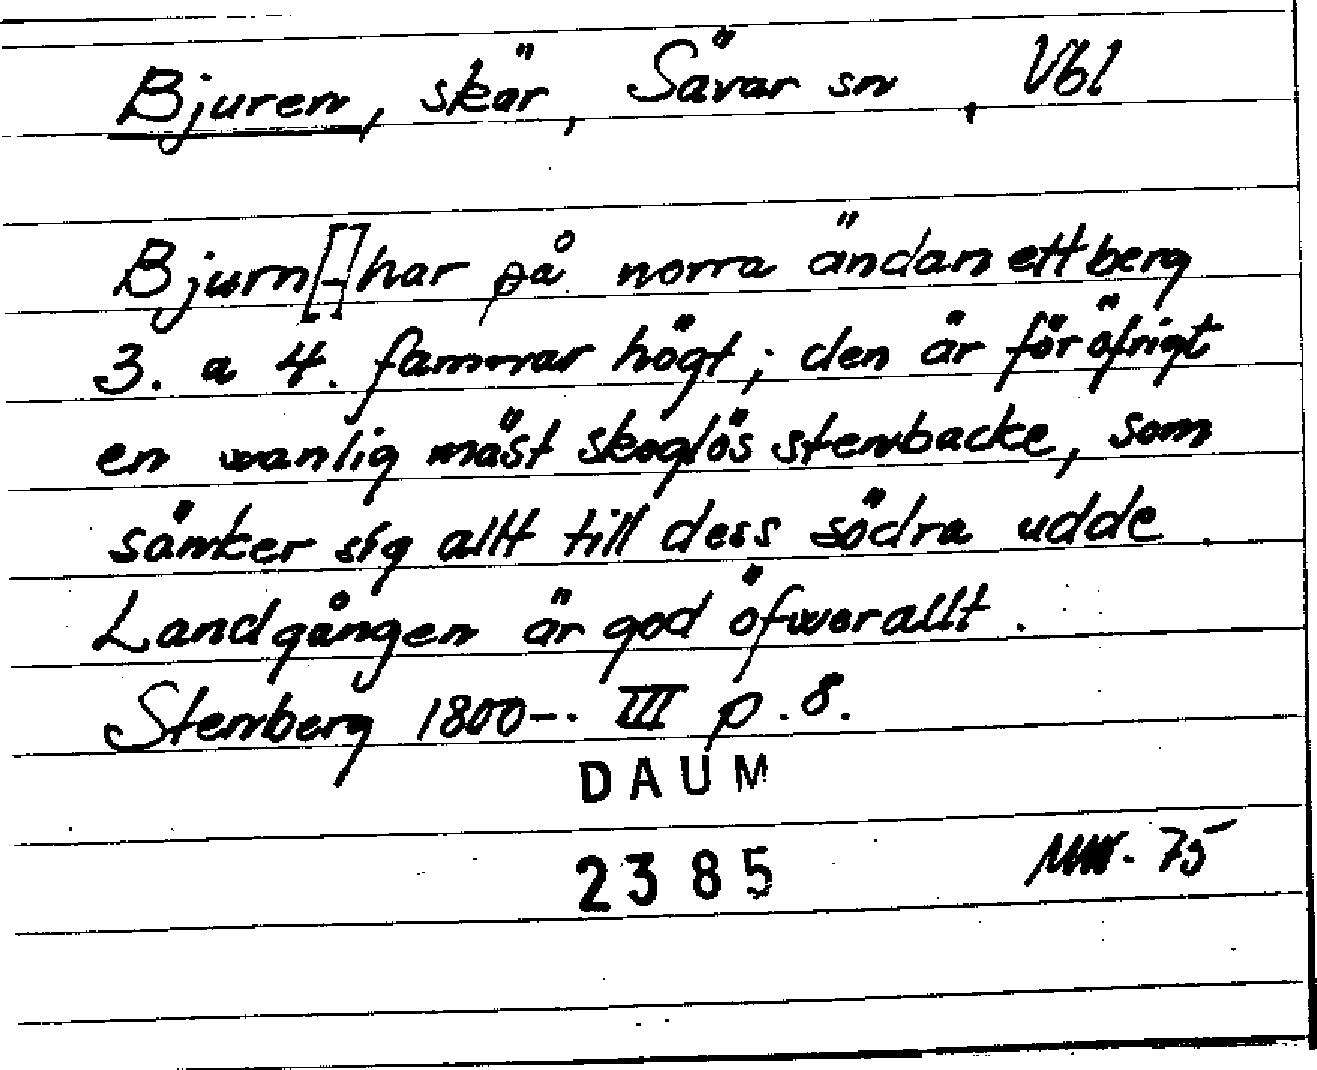 Bjuren, skär, Sävar sn, Vbl
Bjurn[-] har på norra ändan ett berg
3. a 4. famnar högt; den är för öfrigt
en wanlig mäst skoglös stenbacke, som
sänker sig allt till dess södra udde.
Landgången är god öfwerallt.
Stenberg 1800-. III p. 8.
DAUM
2385
75